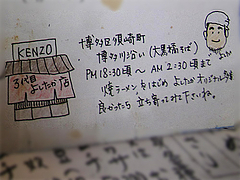 KENZO
3代目
よしたか店
博多区須崎町
博多川沿い(大黒橋そば)
PM18:30頃〜AM2:30頃まで
焼ラーメンをはじめよしたかオリジナル多数
良かったら立ち寄って下さいね。
よしたか